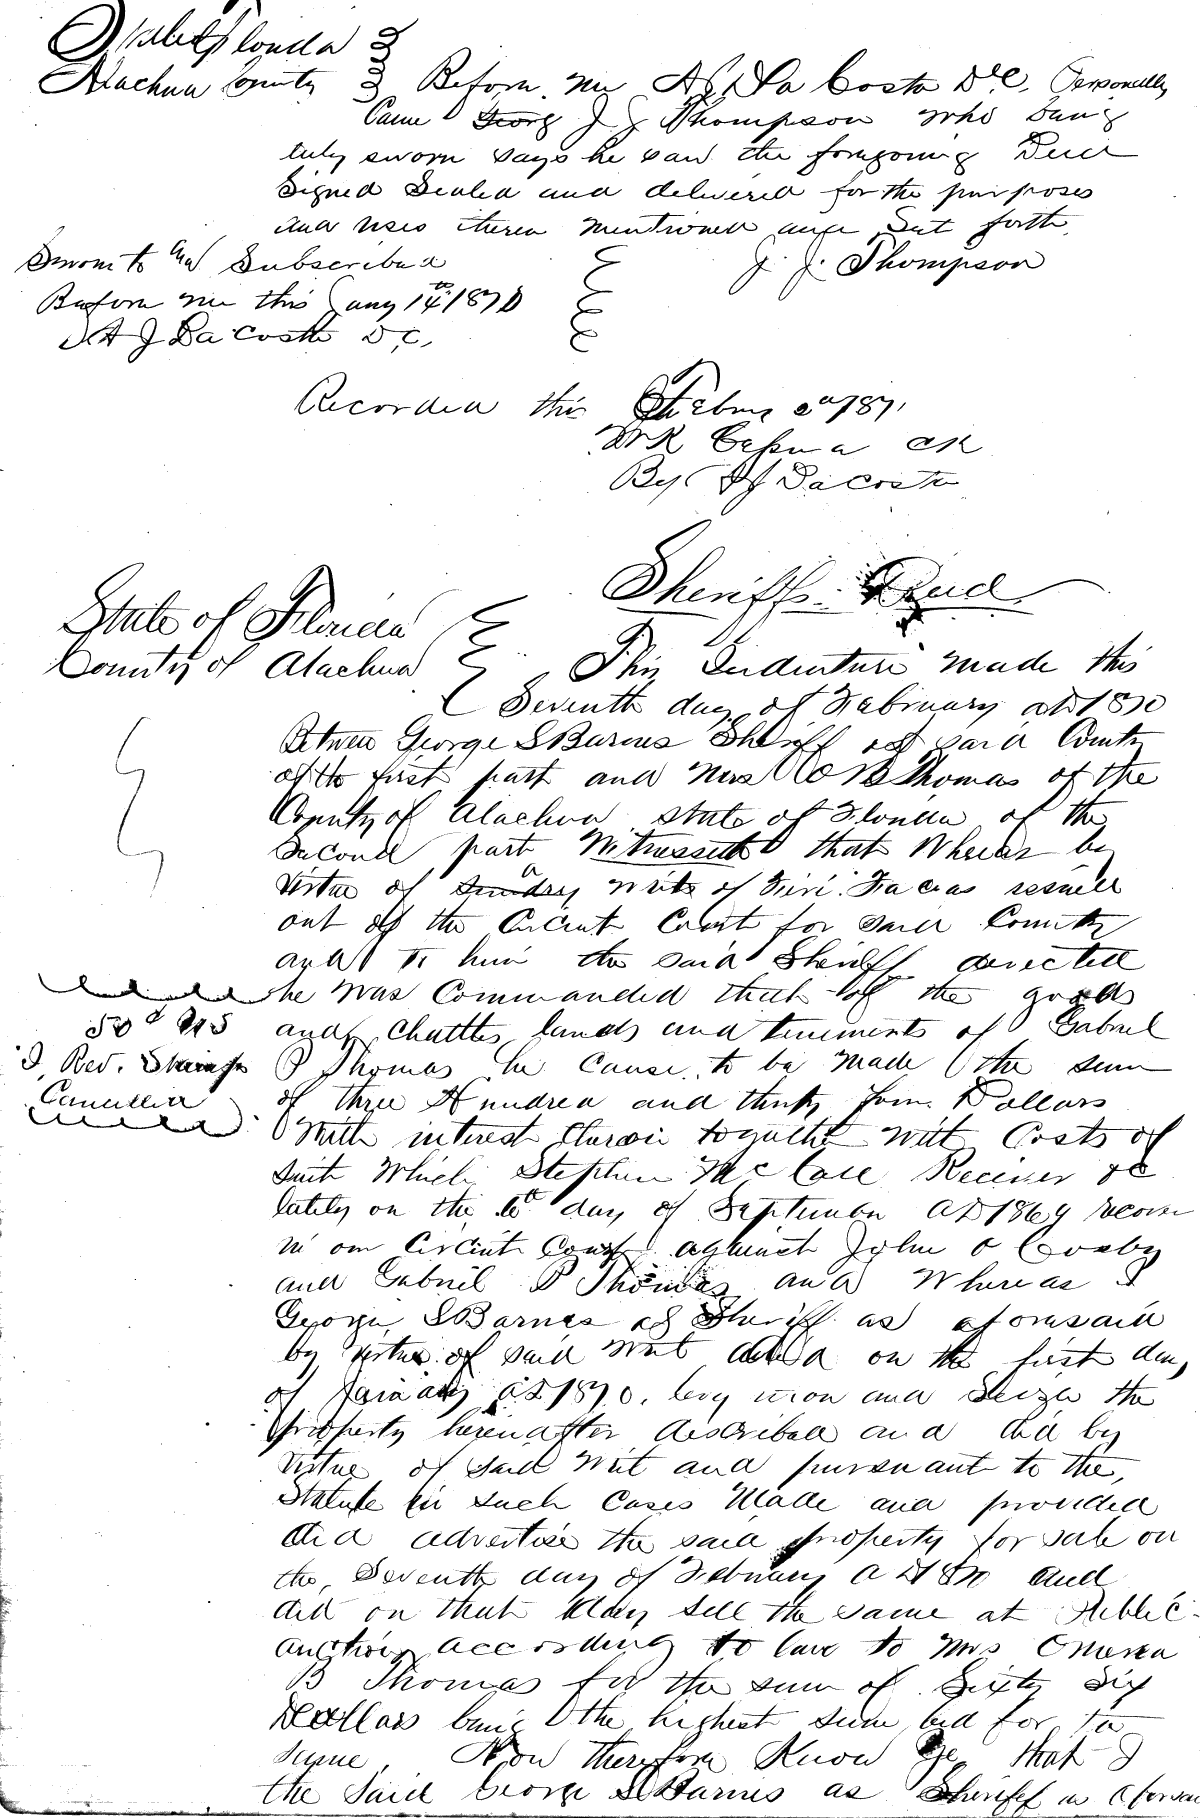 State of Florida
Alachua County Before me A J Da Costa D.C. Personally
Came Georg J J Thompson who being
duly sworn says he saw the foregoing Deed
Signed Sealed and delivered for the purposes
and uses therein mentioned and Set forth
Sworn to and Subscribed J. J. Thompson
Before me this Jany 14th 1870
A J Da Costa D.C.
Recorded this Febry 2nd 187
Clk
By A J Da Costa
Sheriffs Deed
State of Florida
County of Alachua This Indenture made this
Seventh day of February AD 1870
Between George S Barnes Sheriff of said County
of the first part and Mrs O B Thomas of the
County of Alachua State of Florida of the
Second part Witnesseth that Whereas by
Virtue of Sundry a writ of Fieri Facias issued
out of the Circuit Court for said County
and to him the said Sheriff directed
he was Commanded that of the goods
and Chattles, lands and tenements of Gabriel
P Thomas he Cause to be made the sum
of three Hundred and thirty four Dollars
With interest thereon together with Costs of
suit Which Stephen McCall Receiver &c
lately on the 6th day of September AD 1869 recover
in our Circuit Court against John O Cosby
and Gabriel P Thomas and Whereas I
George S Barnes as Sheriff as aforesaid
by virtue of said writ did on the first day
of January AD 1870, levy upon and Seize the
property hereinafter described and did by
Virtue of said Writ and pursuant to the
Statute in such Cases Made and provided
did advertise the said property for sale on
the Seventh day of February AD 1870 and
did on that day sell the same at Public
auction according to law to Mrs
B Thomas for the sum of Sixty Six
Dollars being the highest sum bid for the
same. Now therefore Know Ye, that I
the Said George S Barnes as Sheriff as aforesaid
50 cts US
I. Rev. Stamps
Cancelled